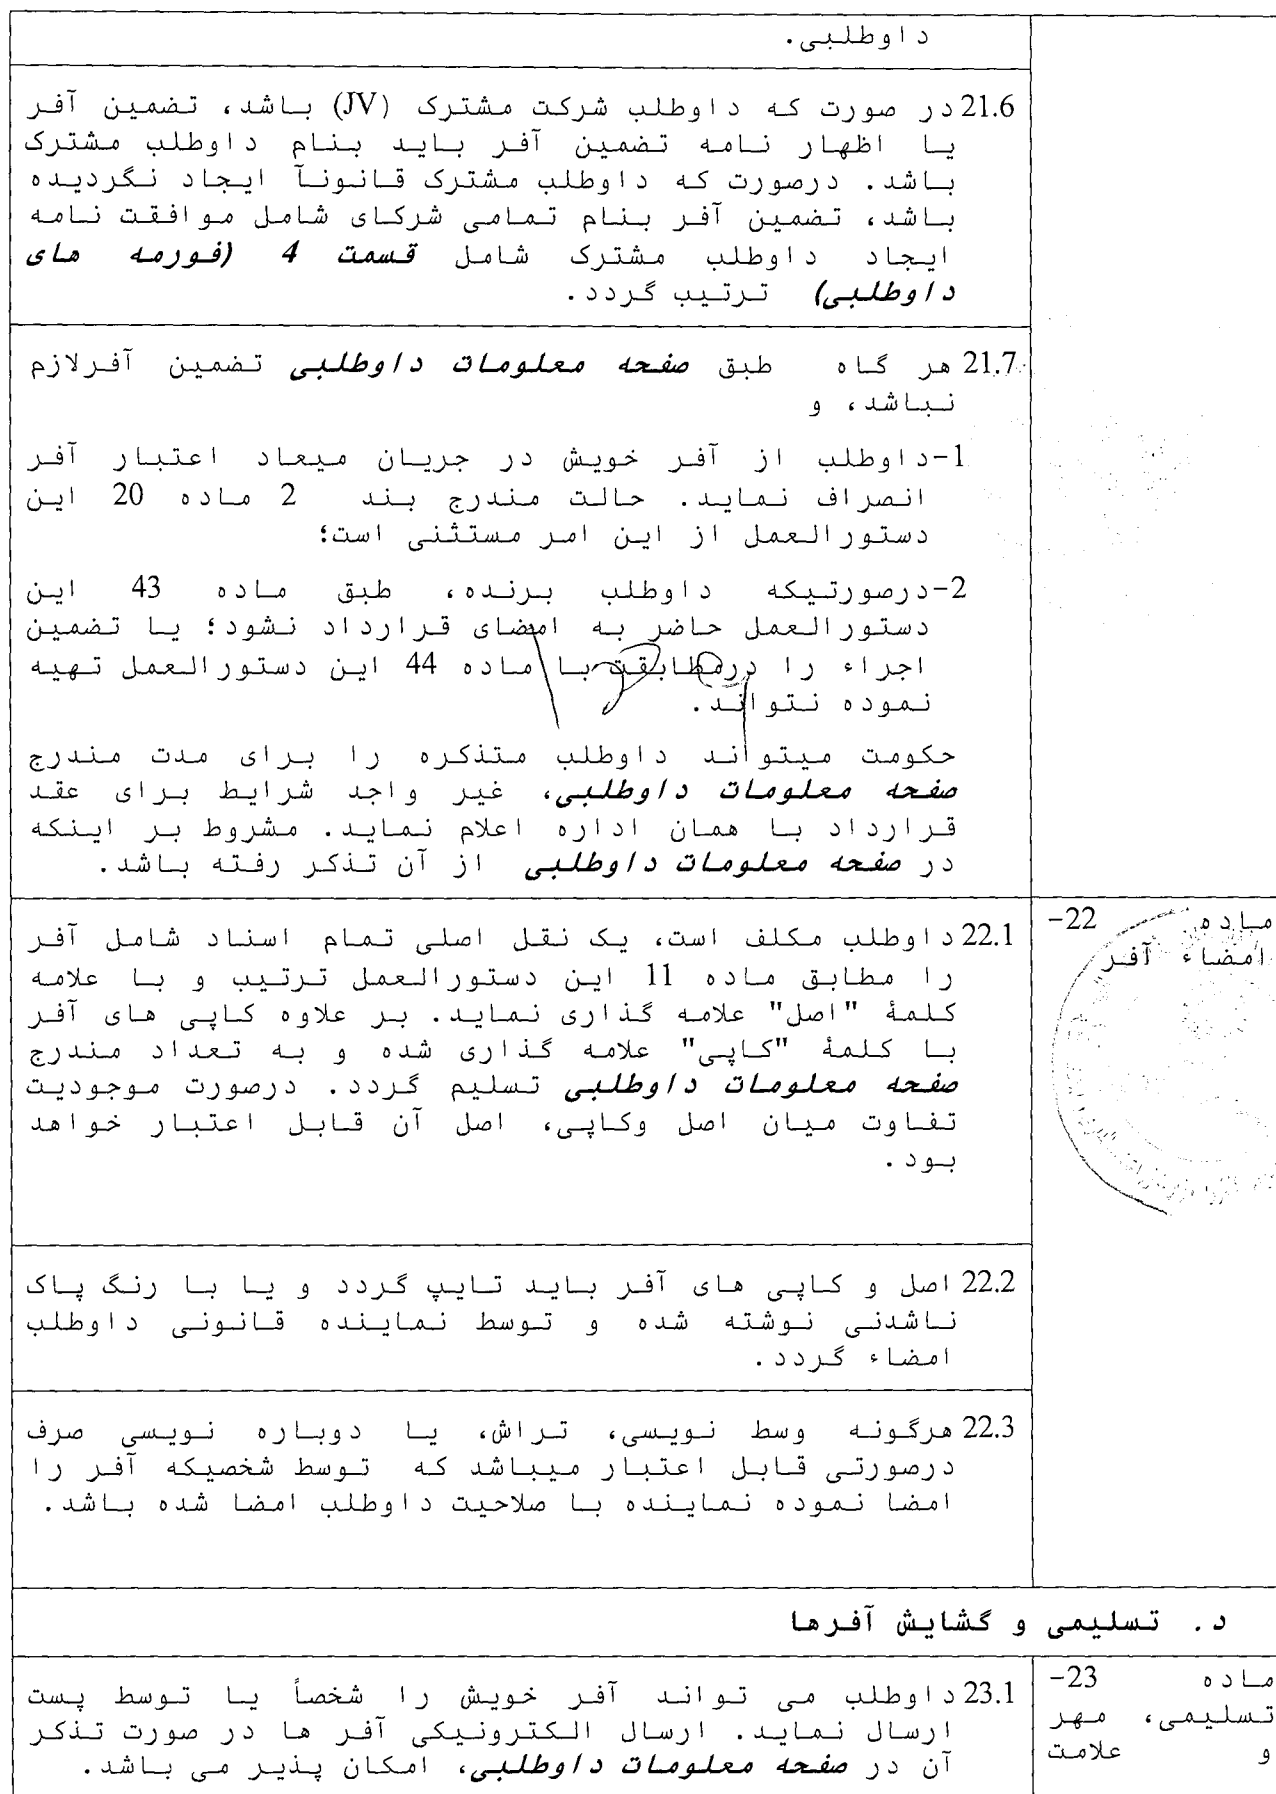 داوطلبی.
21.6 در صورت که داوطلب شرکت مشترک (JV) باشد، تضمین آفر
یا اظهار نامه تضمین آفر باید بنام داوطلب مشترک
باشد. درصورت که داوطلب مشترک قانوناً ایجاد نگردیده
باشد، تضمین آفر بنام تمامی شرکای شامل موافقت نامه
ایجاد داوطلب مشترک شامل قسمت 4 (فورمه های
داوطلبی) ترتیب گردد.
21.7 هر گاه طبق صفحه معلومات داوطلبی تضمین آفرلازم
نباشد، و
1-داوطلب از آفر خویش در جریان میعاد اعتبار آفر
انصراف نماید. حالت مندرج بند 2 ماده 20 این
دستورالعمل از این امر مستثنی است؛
2-درصورتیکه داوطلب برنده، طبق ماده 43 این
دستورالعمل حاضر به امضای قرارداد نشود؛ یا تضمین
اجراء را درمطابقت با ماده 44 این دستورالعمل تهیه
نموده نتواند.
حکومت میتواند داوطلب متذکره را برای مدت مندرج
صفحه معلومات داوطلبی، غیر واجد شرایط برای عقد
قرارداد با همان اداره اعلام نماید. مشروط بر اینکه
در صفحه معلومات داوطلبی از آن تذکر رفته باشد.
ماده 22-
امضاء آفر
22.1 داوطلب مکلف است، یک نقل اصلی تمام اسناد شامل آفر
را مطابق ماده 11 این دستورالعمل ترتیب و با علامه
کلمۀ "اصل" علامه گذاری نماید. بر علاوه کاپی های آفر
با کلمۀ "کاپی" علامه گذاری شده و به تعداد مندرج
صفحه معلومات داوطلبی تسلیم گردد. درصورت موجودیت
تفاوت میان اصل وکاپی، اصل آن قابل اعتبار خواهد
بود.
22.2 اصل و کاپی های آفر باید تایپ گردد و یا با رنگ پاک
ناشدنی نوشته شده و توسط نماینده قانونی داوطلب
امضاء گردد.
22.3 هرگونه وسط نویسی، تراش، یا دوباره نویسی صرف
درصورتی قابل اعتبار میباشد که توسط شخصیکه آفر را
امضا نموده نماینده با صلاحیت داوطلب امضا شده باشد.
د. تسلیمی و گشایش آفرها
ماده 23-
تسلیمی، مهر
و علامت
23.1 داوطلب می تواند آفر خویش را شخصاً یا توسط پست
ارسال نماید. ارسال الکترونیکی آفر ها در صورت تذکر
آن در صفحه معلومات داوطلبی، امکان پذیر می باشد.